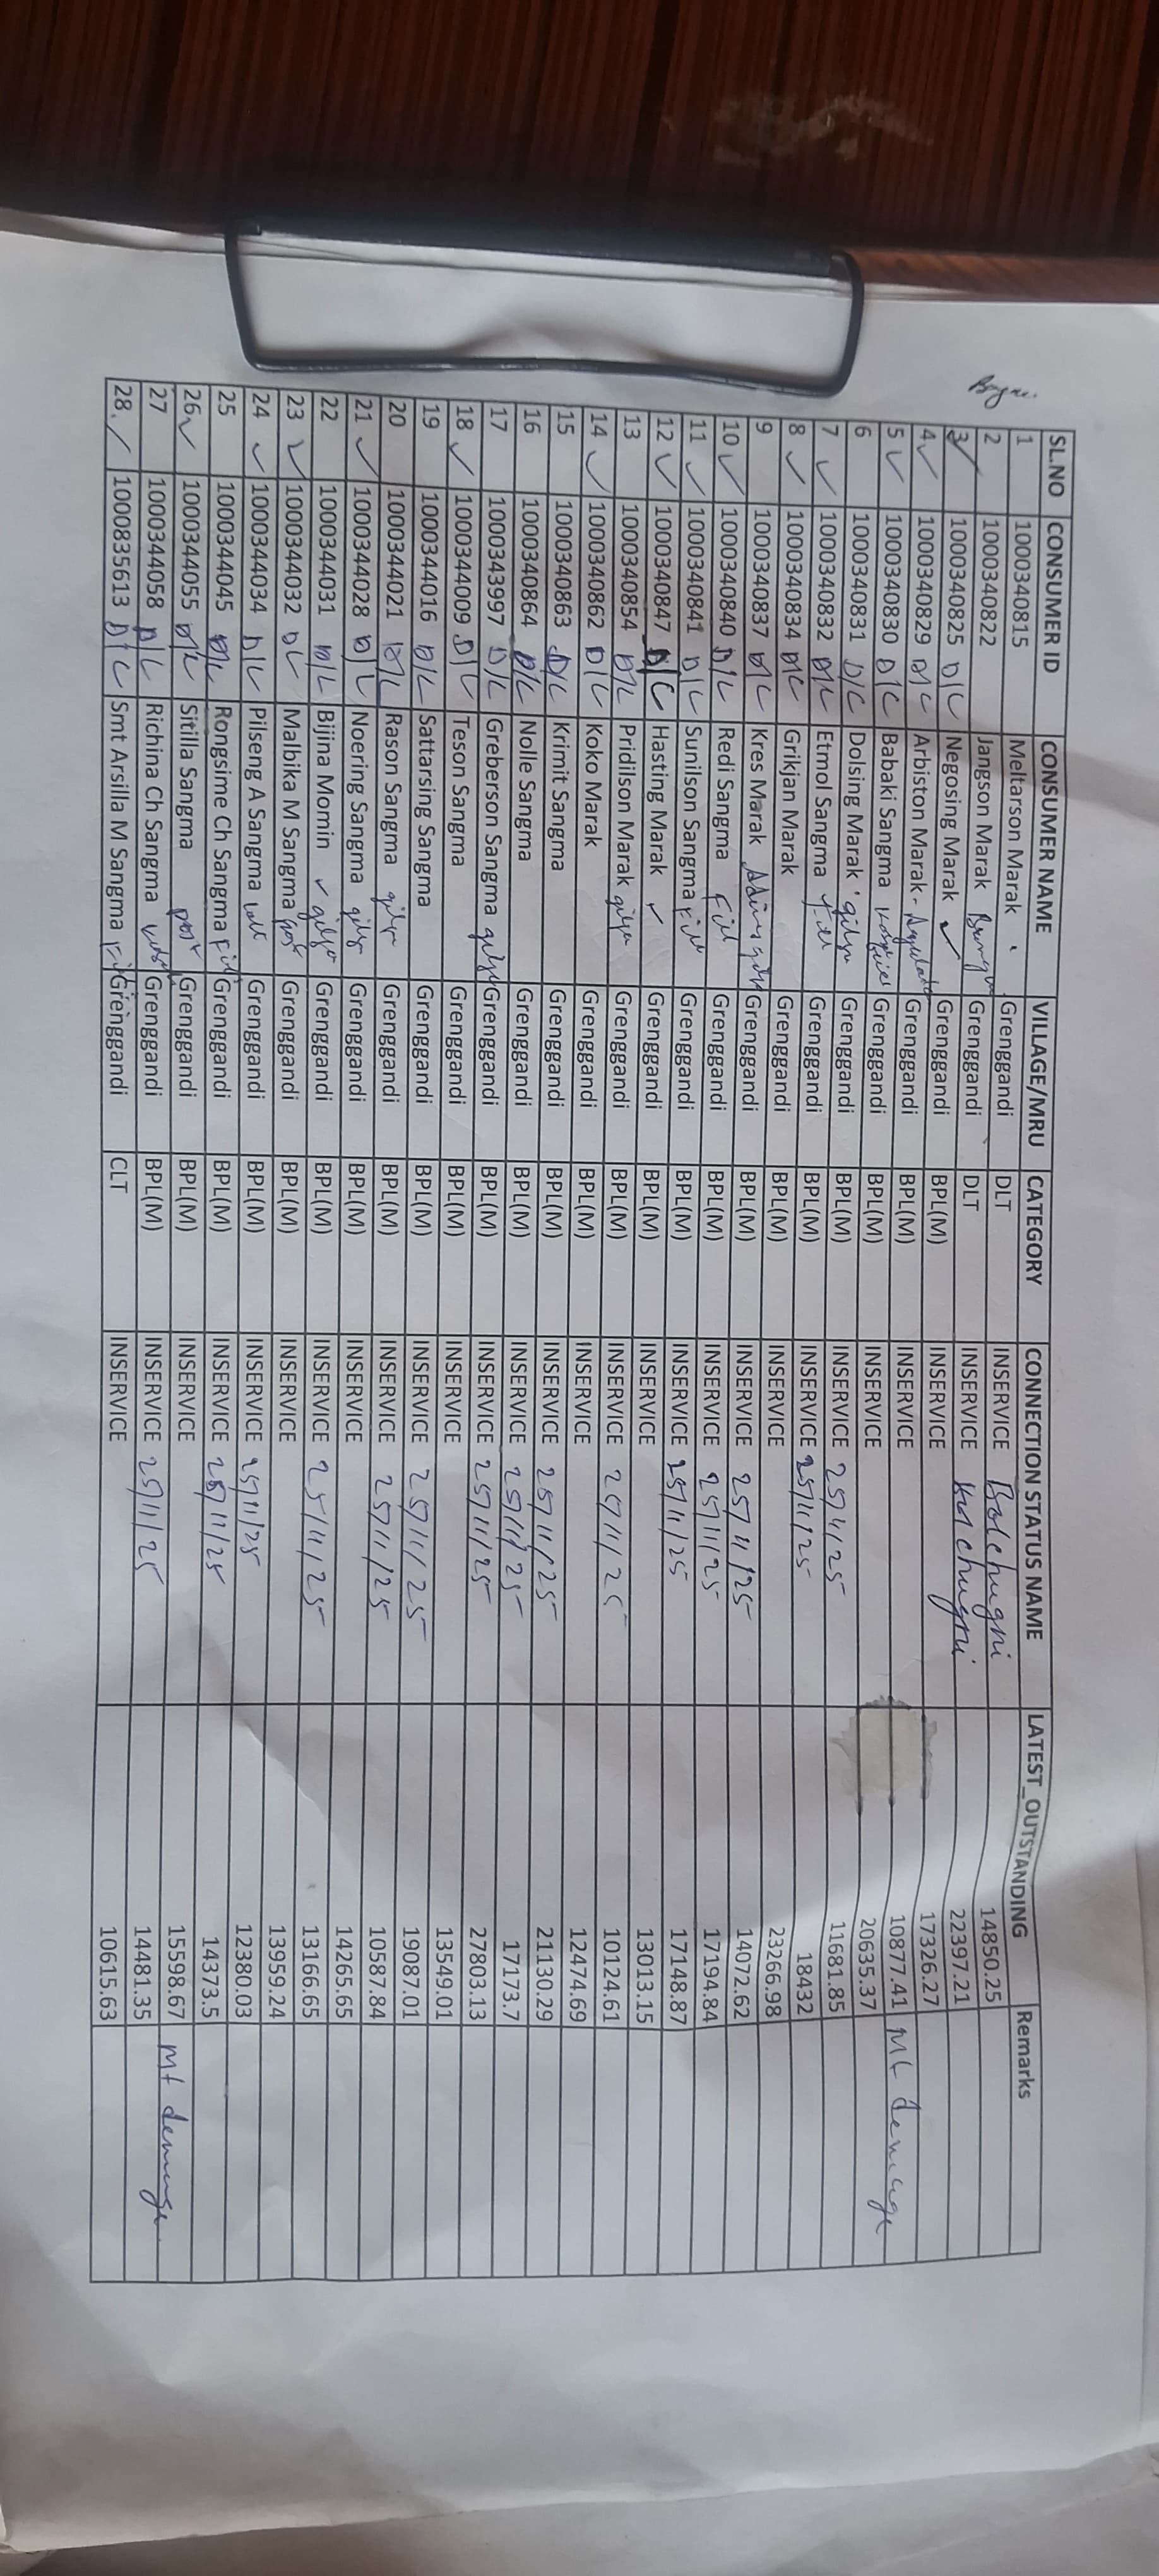 SL.NO CONSUMER ID CONSUMER NAME VILLAGE/MRU CATEGORY CONNECTION STATUS NAME LATEST_OUTSTANDING Remarks
1 1000340815 Meltarson Marak Grenggandi DLT INSERVICE Bolchugri 14850.25
2 1000340822 Jangson Marak Grenggandi DLT INSERVICE Bolchugri 22397.21
3 ✓ 1000340825 D/C Negosing Marak ✓ Grenggandi BPL(M) INSERVICE 17326.27
4 ✓ 1000340829 D/C Arbiston Marak - Grenggandi BPL(M) INSERVICE 10877.41 Mt demage
5 ✓ 1000340830 D/C Babaki Sangma Grenggandi BPL(M) INSERVICE 20635.37
6 1000340831 D/C Dolsing Marak Grenggandi BPL(M) INSERVICE 25/11/25 11681.85
7 ✓ 1000340832 D/C Etmol Sangma Grenggandi BPL(M) INSERVICE 25/11/25 18432
8 ✓ 1000340834 D/C Grikjan Marak Grenggandi BPL(M) INSERVICE 23266.98
9 1000340837 D/C Kres Marak Grenggandi BPL(M) INSERVICE 25/11/25 14072.62
10 ✓ 1000340840 D/C Redi Sangma Grenggandi BPL(M) INSERVICE 25/11/25 17194.84
11 ✓ 1000340841 D/C Sunilson Sangma Grenggandi BPL(M) INSERVICE 25/11/25 17148.87
12 ✓ 1000340847 D/C Hasting Marak ✓ Grenggandi BPL(M) INSERVICE 13013.15
13 1000340854 D/C Pridilson Marak Grenggandi BPL(M) INSERVICE 25/11/25 10124.61
14 ✓ 1000340862 D/C Koko Marak Grenggandi BPL(M) INSERVICE 12474.69
15 1000340863 D/C Krimit Sangma Grenggandi BPL(M) INSERVICE 25/11/25 21130.29
16 1000340864 D/C Nolle Sangma Grenggandi BPL(M) INSERVICE 25/11/25 17173.7
17 1000343997 D/C Greberson Sangma Grenggandi BPL(M) INSERVICE 25/11/25 27803.13
18 ✓ 1000344009 D/C Teson Sangma Grenggandi BPL(M) INSERVICE 13549.01
19 1000344016 D/C Sattarsing Sangma Grenggandi BPL(M) INSERVICE 25/11/25 19087.01
20 1000344021 D/C Rason Sangma Grenggandi BPL(M) INSERVICE 25/11/25 10587.84
21 ✓ 1000344028 D/C Noering Sangma Grenggandi BPL(M) INSERVICE 14265.65
22 1000344031 D/C Bijina Momin ✓ Grenggandi BPL(M) INSERVICE 25/11/25 13166.65
23 ✓ 1000344032 D/C Malbika M Sangma Grenggandi BPL(M) INSERVICE 13959.24
24 ✓ 1000344034 D/C Pilseng A Sangma Grenggandi BPL(M) INSERVICE 25/11/25 12380.03
25 1000344045 D/C Rongsime Ch Sangma Grenggandi BPL(M) INSERVICE 25/11/25 14373.5
26 ✓ 1000344055 D/C Sitilla Sangma Grenggandi BPL(M) INSERVICE 15598.67 Mt demurge
27 1000344058 D/C Richina Ch Sangma Grenggandi BPL(M) INSERVICE 25/11/25 14481.35
28 ✓ 1000835613 D/C Smt Arsilla M Sangma Grenggandi CLT INSERVICE 10615.63